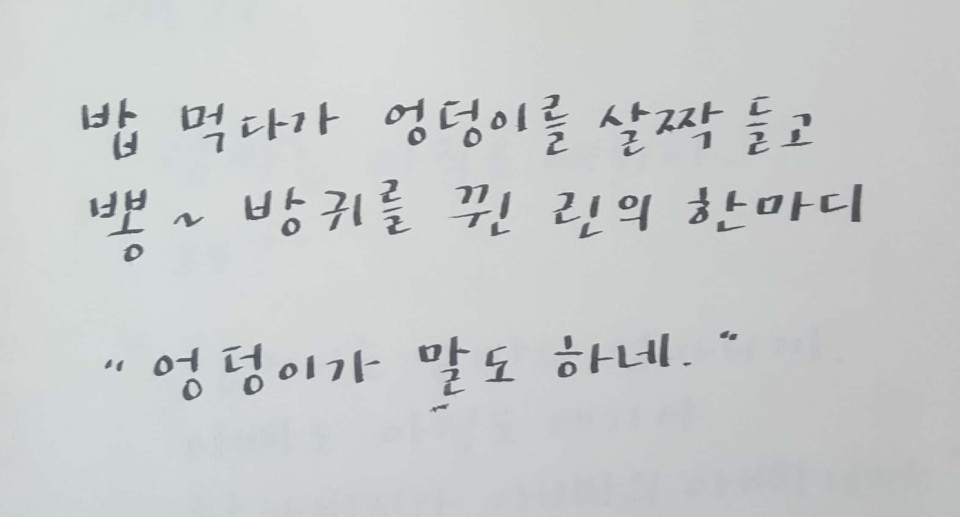 밥 먹다가 엉덩이를 살짝 들고
뽕~ 방귀를 뀐 린의 한마디
"엉덩이가 말도 하네."